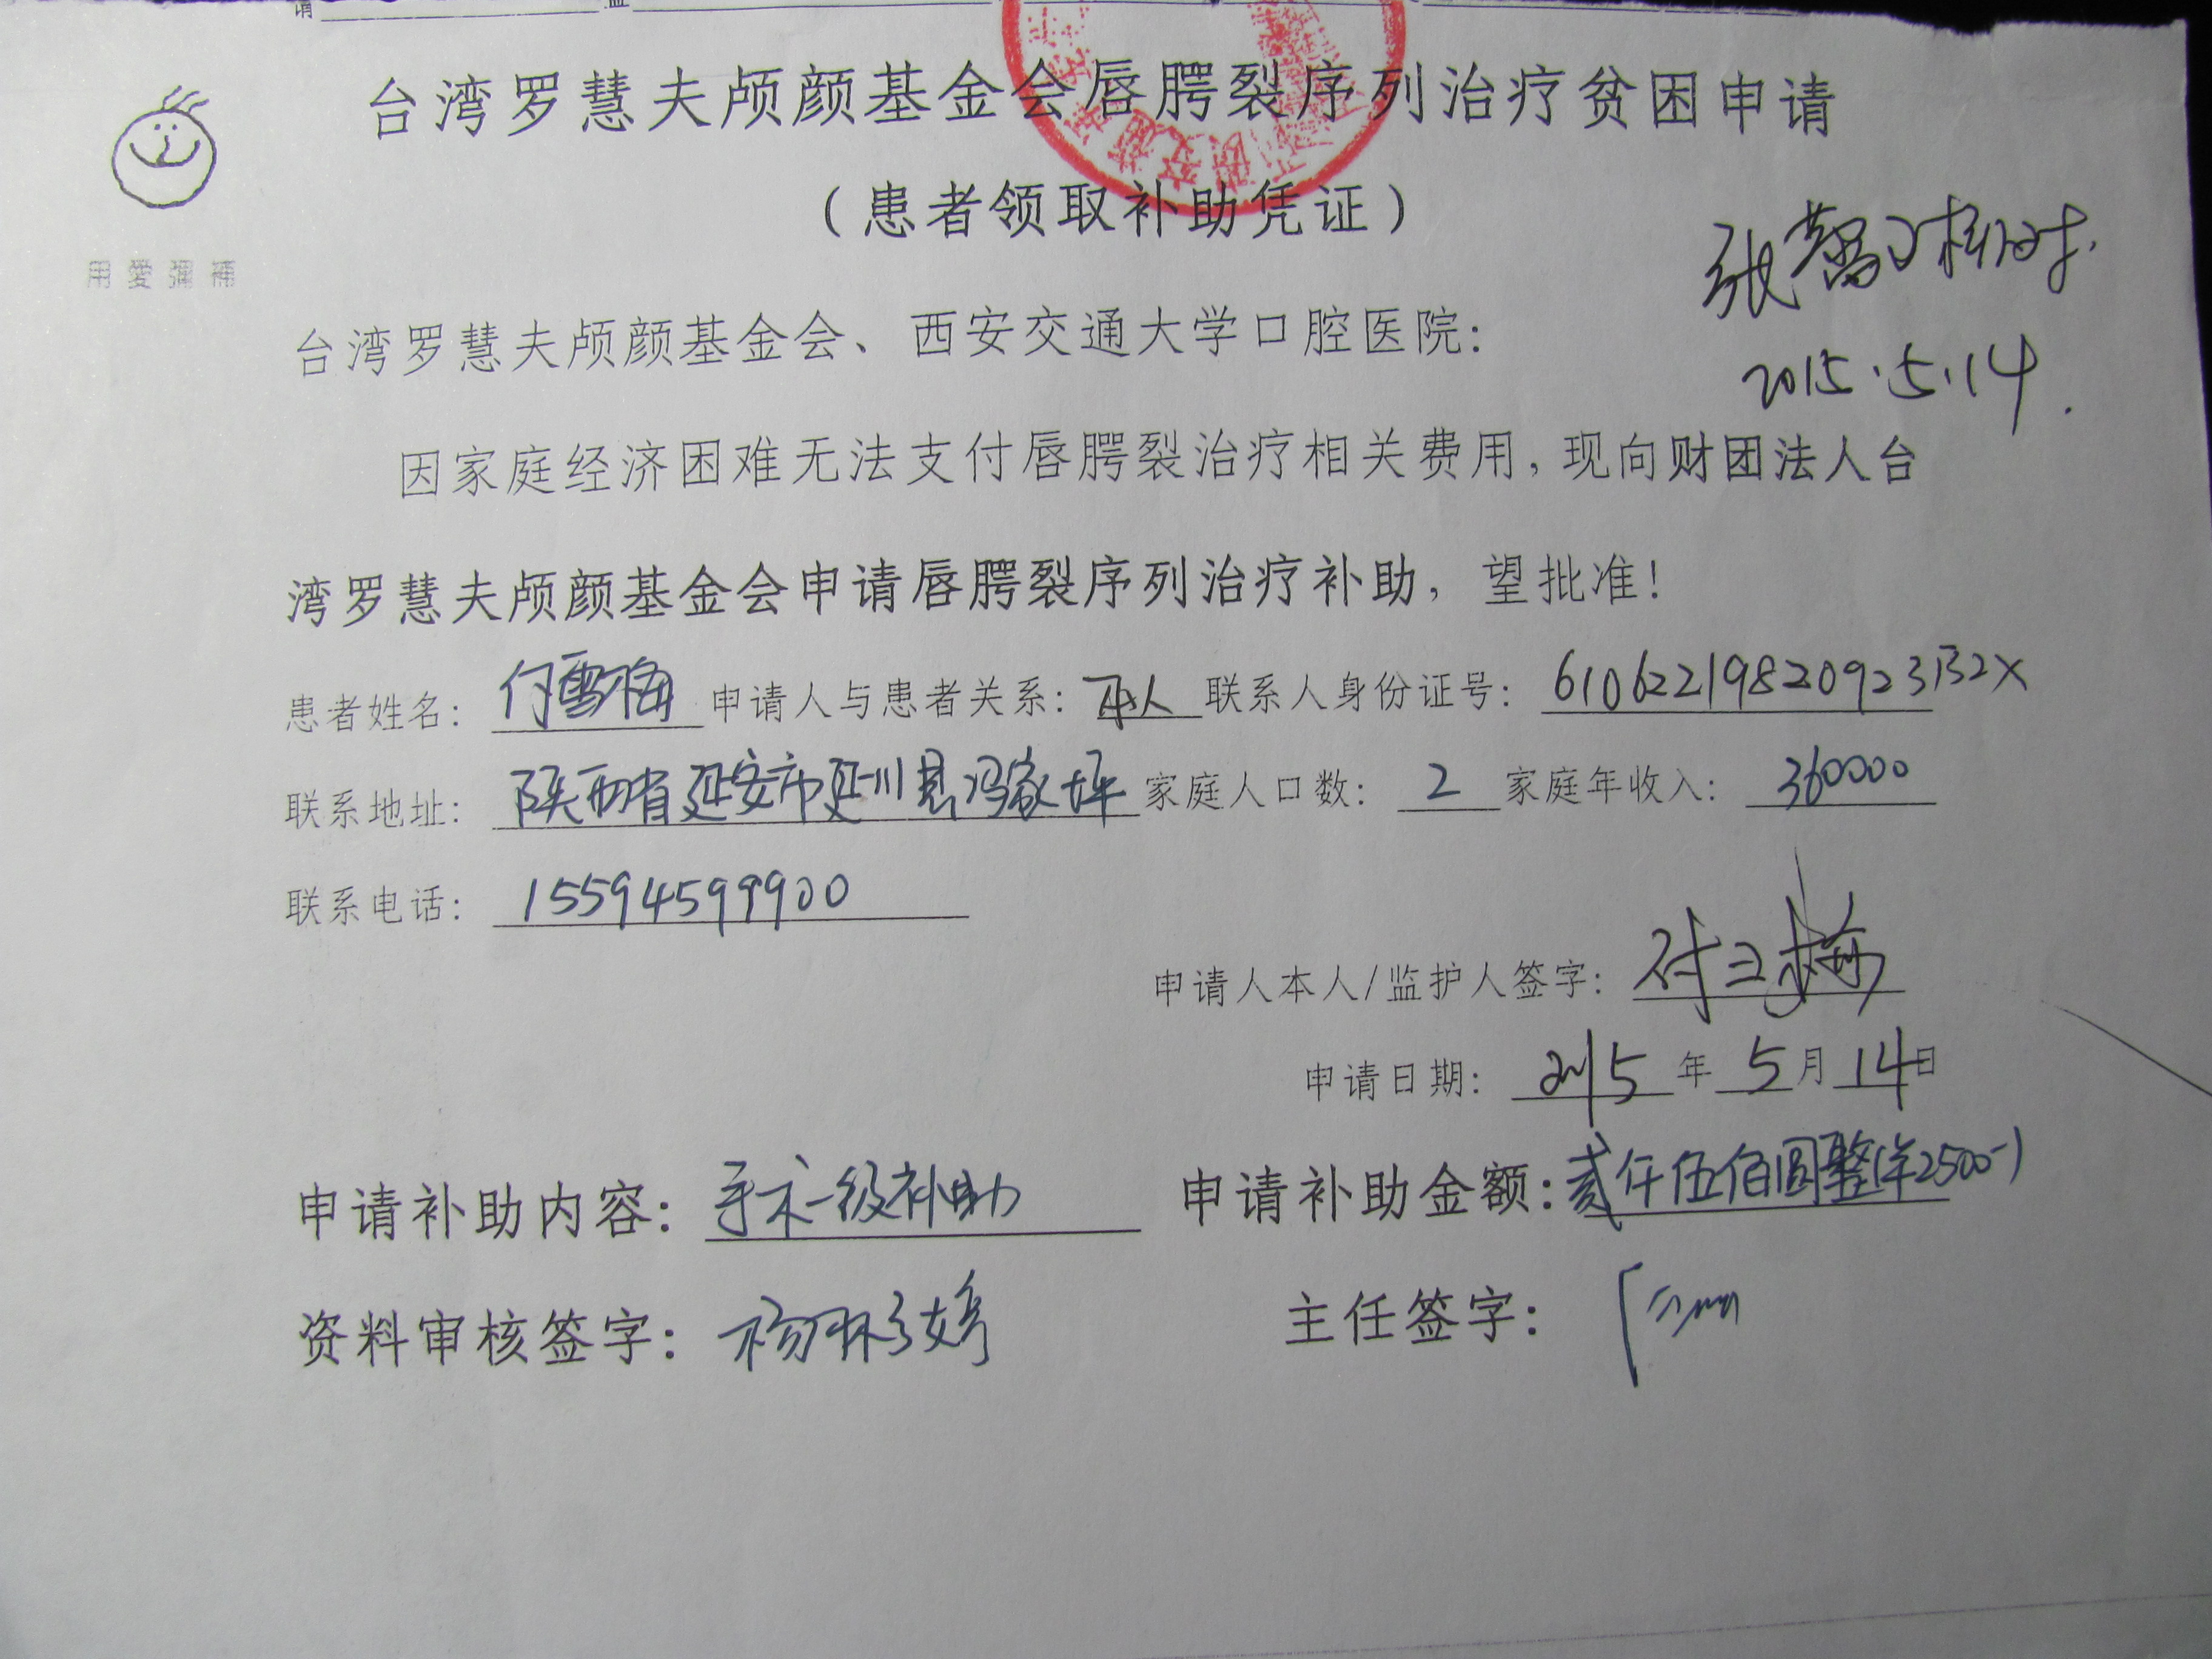 台湾罗慧夫颅颜基金会唇腭裂序列治疗贫困申请
（患者领取补助凭证）
用愛彌補
2015.5.14
台湾罗慧夫颅颜基金会、西安交通大学口腔医院：
因家庭经济困难无法支付唇腭裂治疗相关费用，现向财团法人台
湾罗慧夫颅颜基金会申请唇腭裂序列治疗补助，望批准！
患者姓名：付雪梅 申请人与患者关系：本人 联系人身份证号：
联系地址：陕西省延安市延川县冯家坪 家庭人口数：2 家庭年收入：360000
联系电话：15594599900
申请人本人/监护人签字：
申请日期：2015年5月14日
申请补助内容：手术一级补助 申请补助金额：贰仟伍佰圆整(¥2500-)
资料审核签字： 主任签字：